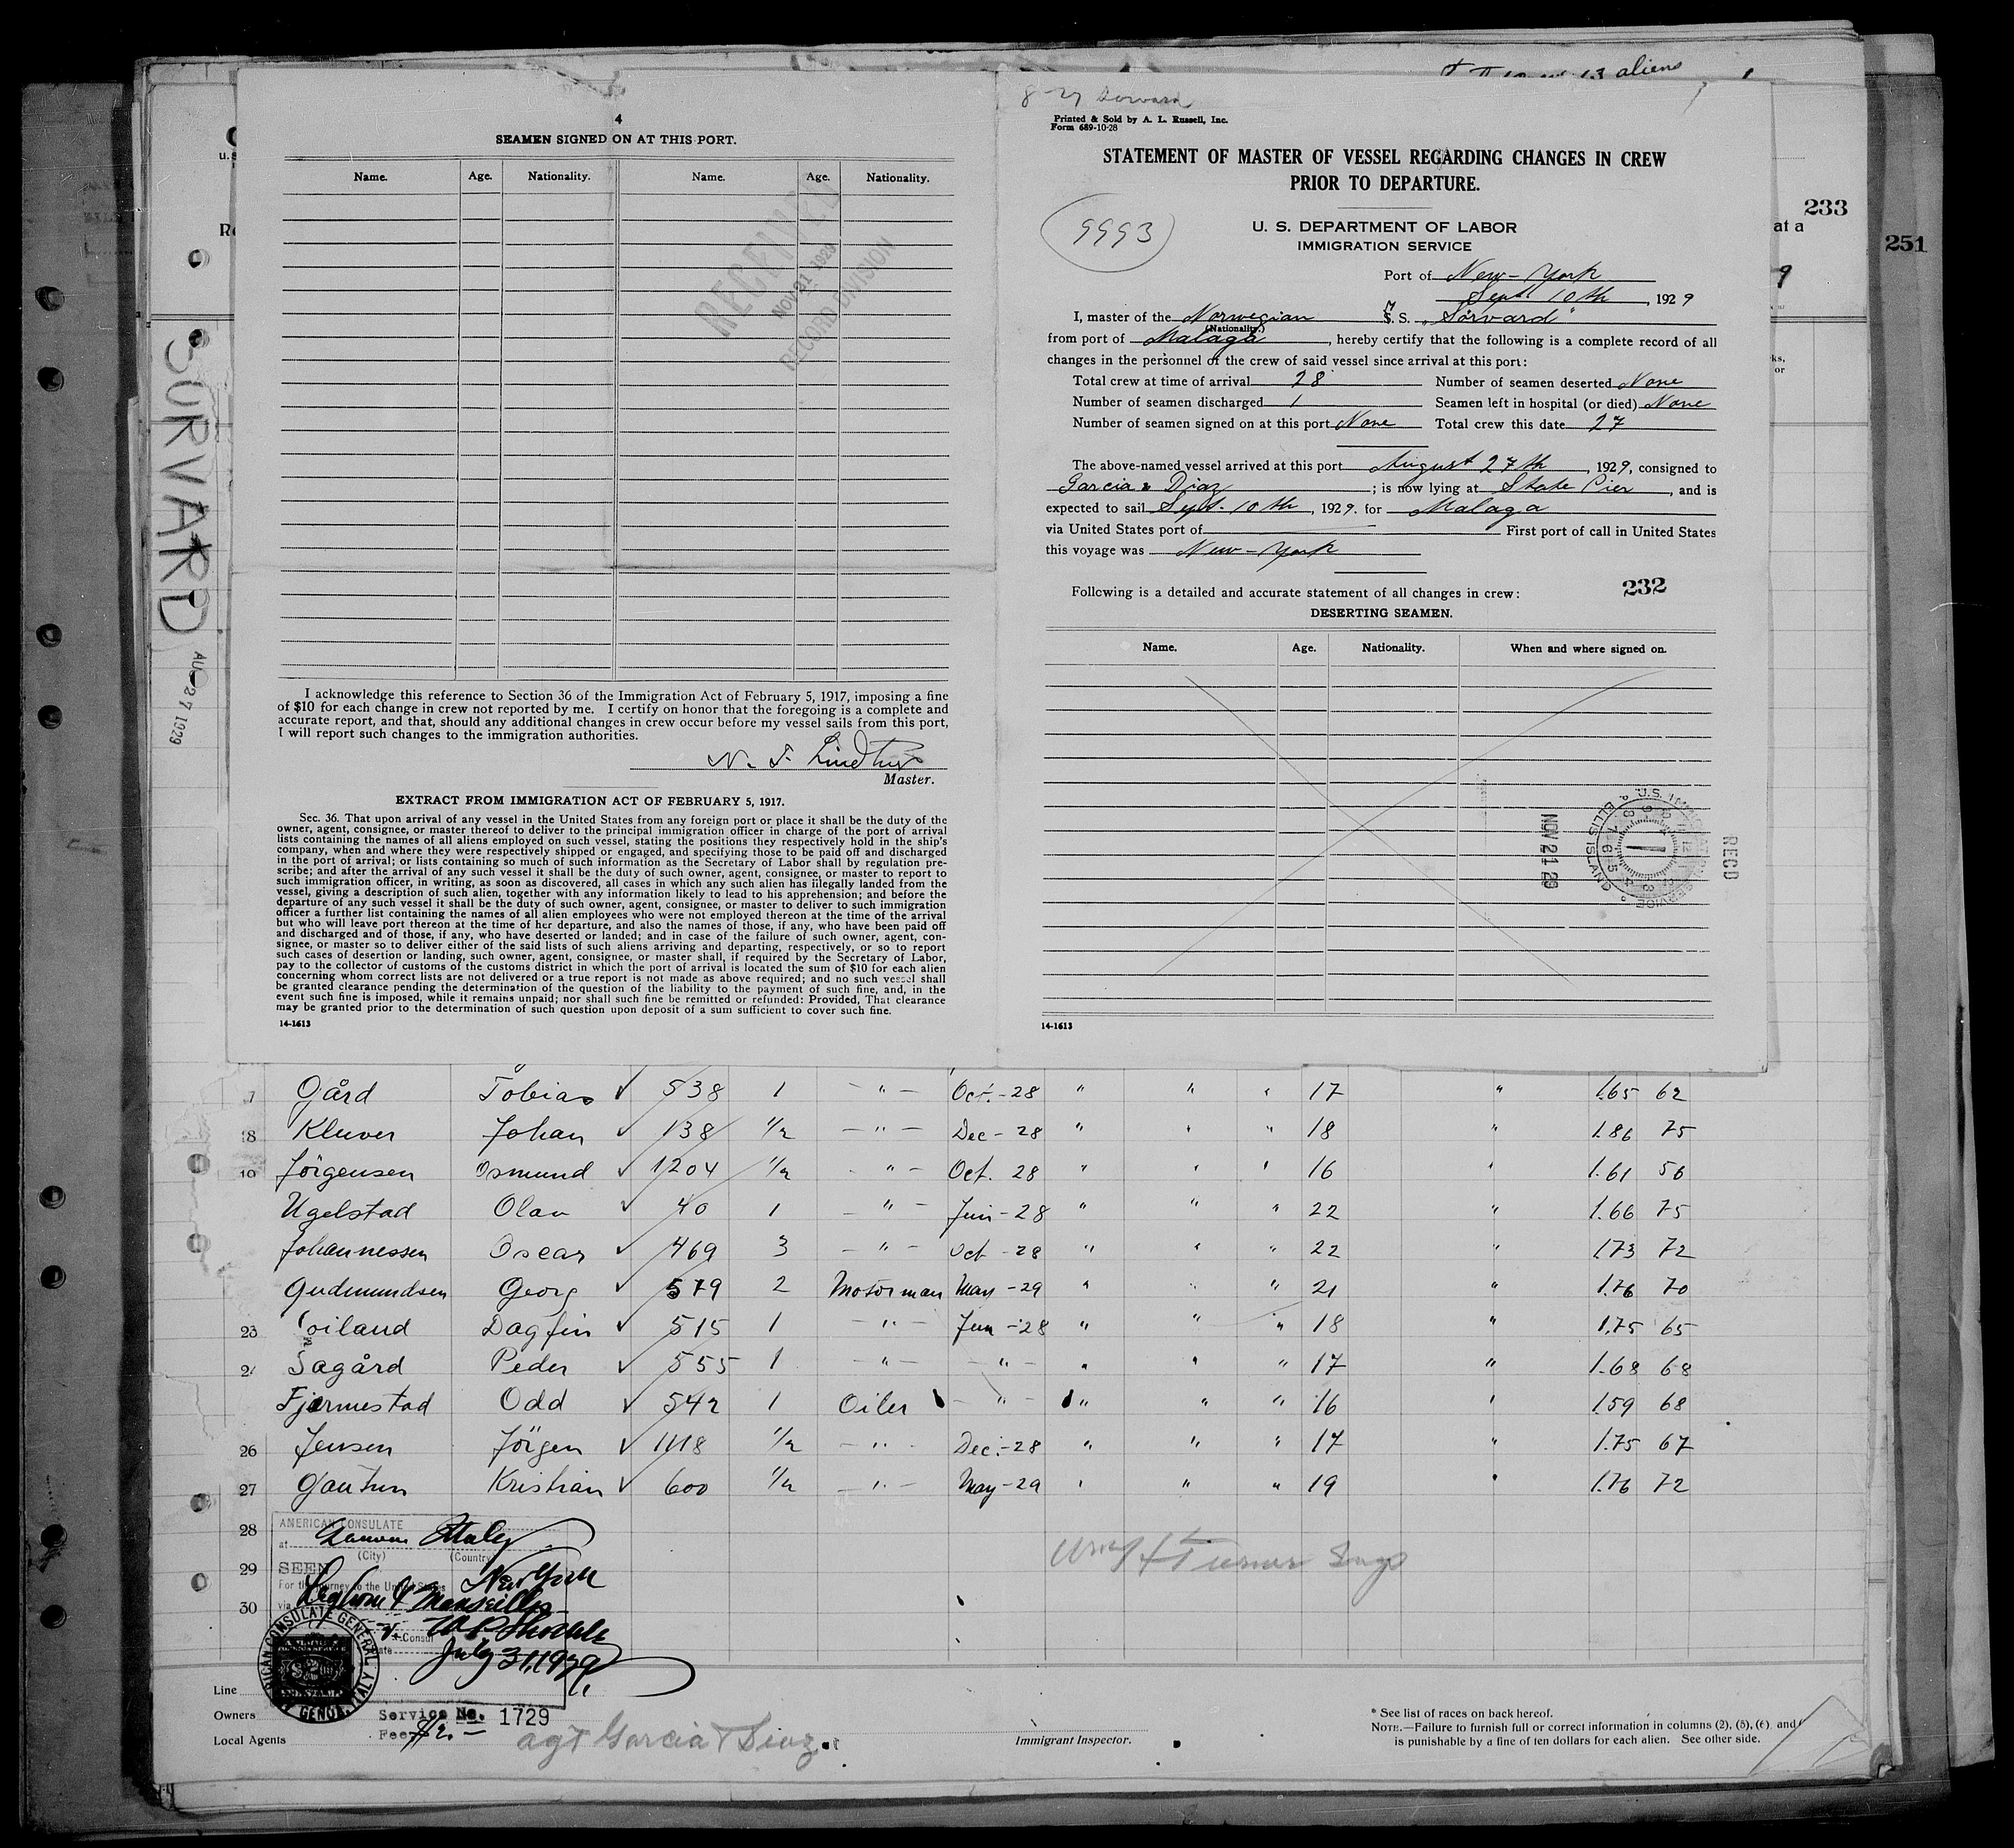 13 aliens
233
251
at a
9
SURVARD
AUG 27 1929
4
SEAMEN SIGNED ON AT THIS PORT.
Name. Age. Nationality. Name. Age. Nationality.
RECEIVED
NOV 21 1929
RECORD DIVISION
I acknowledge this reference to Section 36 of the Immigration Act of February 5, 1917, imposing a fine
of $10 for each change in crew not reported by me. I certify on honor that the foregoing is a complete and
accurate report, and that, should any additional changes in crew occur before my vessel sails from this port,
I will report such changes to the immigration authorities.
N. T.
Master.
EXTRACT FROM IMMIGRATION ACT OF FEBRUARY 5, 1917.
Sec. 36. That upon arrival of any vessel in the United States from any foreign port or place it shall be the duty of the
owner, agent, consignee, or master thereof to deliver to the principal immigration officer in charge of the port of arrival
lists containing the names of all aliens employed on such vessel, stating the positions they respectively hold in the ship's
company, when and where they were respectively shipped or engaged, and specifying those to be paid off and discharged
in the port of arrival; or lists containing so much of such information as the Secretary of Labor shall by regulation pre-
scribe; and after the arrival of any such vessel it shall be the duty of such owner, agent, consignee, or master to report to
such immigration officer, in writing, as soon as discovered, all cases in which any such alien has illegally landed from the
vessel, giving a description of such alien, together with any information likely to lead to his apprehension; and before the
departure of any such vessel it shall be the duty of such owner, agent, consignee, or master to deliver to such immigration
officer a further list containing the names of all alien employees who were not employed thereon at the time of the arrival
but who will leave port thereon at the time of her departure, and also the names of those, if any, who have been paid off
and discharged and of those, if any, who have deserted or landed; and in case of the failure of such owner, agent, con-
signee, or master so to deliver either of the said lists of such aliens arriving and departing, respectively, or so to report
such cases of desertion or landing, such owner, agent, consignee, or master shall, if required by the Secretary of Labor,
pay to the collector of customs of the customs district in which the port of arrival is located the sum of $10 for each alien
concerning whom correct lists are not delivered or a true report is not made as above required; and no such vessel shall
be granted clearance pending the determination of the question of the liability to the payment of such fine, and, in the
event such fine is imposed, while it remains unpaid; nor shall such fine be remitted or refunded: Provided, That clearance
may be granted prior to the determination of such question upon deposit of a sum sufficient to cover such fine.
14-1613
8-27 Sorvard
Printed & Sold by A. L. Russell, Inc.
Form 689-10-28
STATEMENT OF MASTER OF VESSEL REGARDING CHANGES IN CREW
PRIOR TO DEPARTURE.
9993
U. S. DEPARTMENT OF LABOR
IMMIGRATION SERVICE
Port of New-York
Sept. 10th, 1929
I, master of the Norwegian M S.S. "Sörvard"
(Nationality.)
from port of Malaga, hereby certify that the following is a complete record of all
changes in the personnel of the crew of said vessel since arrival at this port:
Total crew at time of arrival 28 Number of seamen deserted None
Number of seamen discharged 1 Seamen left in hospital (or died) None
Number of seamen signed on at this port None Total crew this date 27
The above-named vessel arrived at this port August 27th, 1929, consigned to
Garcia & Diaz; is now lying at State Pier, and is
expected to sail Sept. 10th, 1929. for Malaga
via United States port of First port of call in United States
this voyage was New-York
Following is a detailed and accurate statement of all changes in crew: 232
DESERTING SEAMEN.
Name. Age. Nationality. When and where signed on.
NOV 21 29
U.S. IMMIGRATION SERVICE ELLIS ISLAND
RECD
14-1613
7 Gård Tobias ✓ 538 1 -"- Oct.-28 " " " 17 " 1.65 62
18 Kluver Johan ✓ 138 1/2 -"- Dec-28 " " " 18 " 1.86 75
19 Jörgensen Osmund ✓ 1204 1/2 "- Oct. 28 " " " 16 " 1.61 56
Ugelstad Olav ✓ 40 1 -"- Jun-28 " " " 22 " 1.66 75
Johannessen Oscar ✓ 469 3 -"- Oct-28 " " " 22 " 1.73 72
Gudmundsen Georg ✓ 579 2 Motorman May-29 " " " 21 " 1.76 70
23 oiland Dagfin ✓ 515 1 -"- Jun-28 " " " 18 " 1.75 65
2 Sagård Peder ✓ 555 1 -"- -"- " " " 17 " 1.68 68
Fjermestad Odd ✓ 542 1 Oiler -"- " " " 16 " 1.59 68
26 Jensen Jörgen ✓ 1118 1/2 -"- Dec.-28 " " " 17 " 1.75 67
27 Gautun Kristian ✓ 600 1/2 -"- May-29 " " " 19 " 1.76 72
28
29
30
AMERICAN CONSULATE
at Italy
(City) (Country)
SEEN
For the journey to the United States New York
via Leghorn & Marseilles
Consul
July 31, 1929
AMERICAN CONSULATE GENERAL GENOA, ITALY
Service No. 1729
Fee $2.-
Line
Owners
Local Agents
agt Garcia & Diaz
Immigrant Inspector.
* See list of races on back hereof.
NOTE.—Failure to furnish full or correct information in columns (2), (5), (6) and
is punishable by a fine of ten dollars for each alien. See other side.